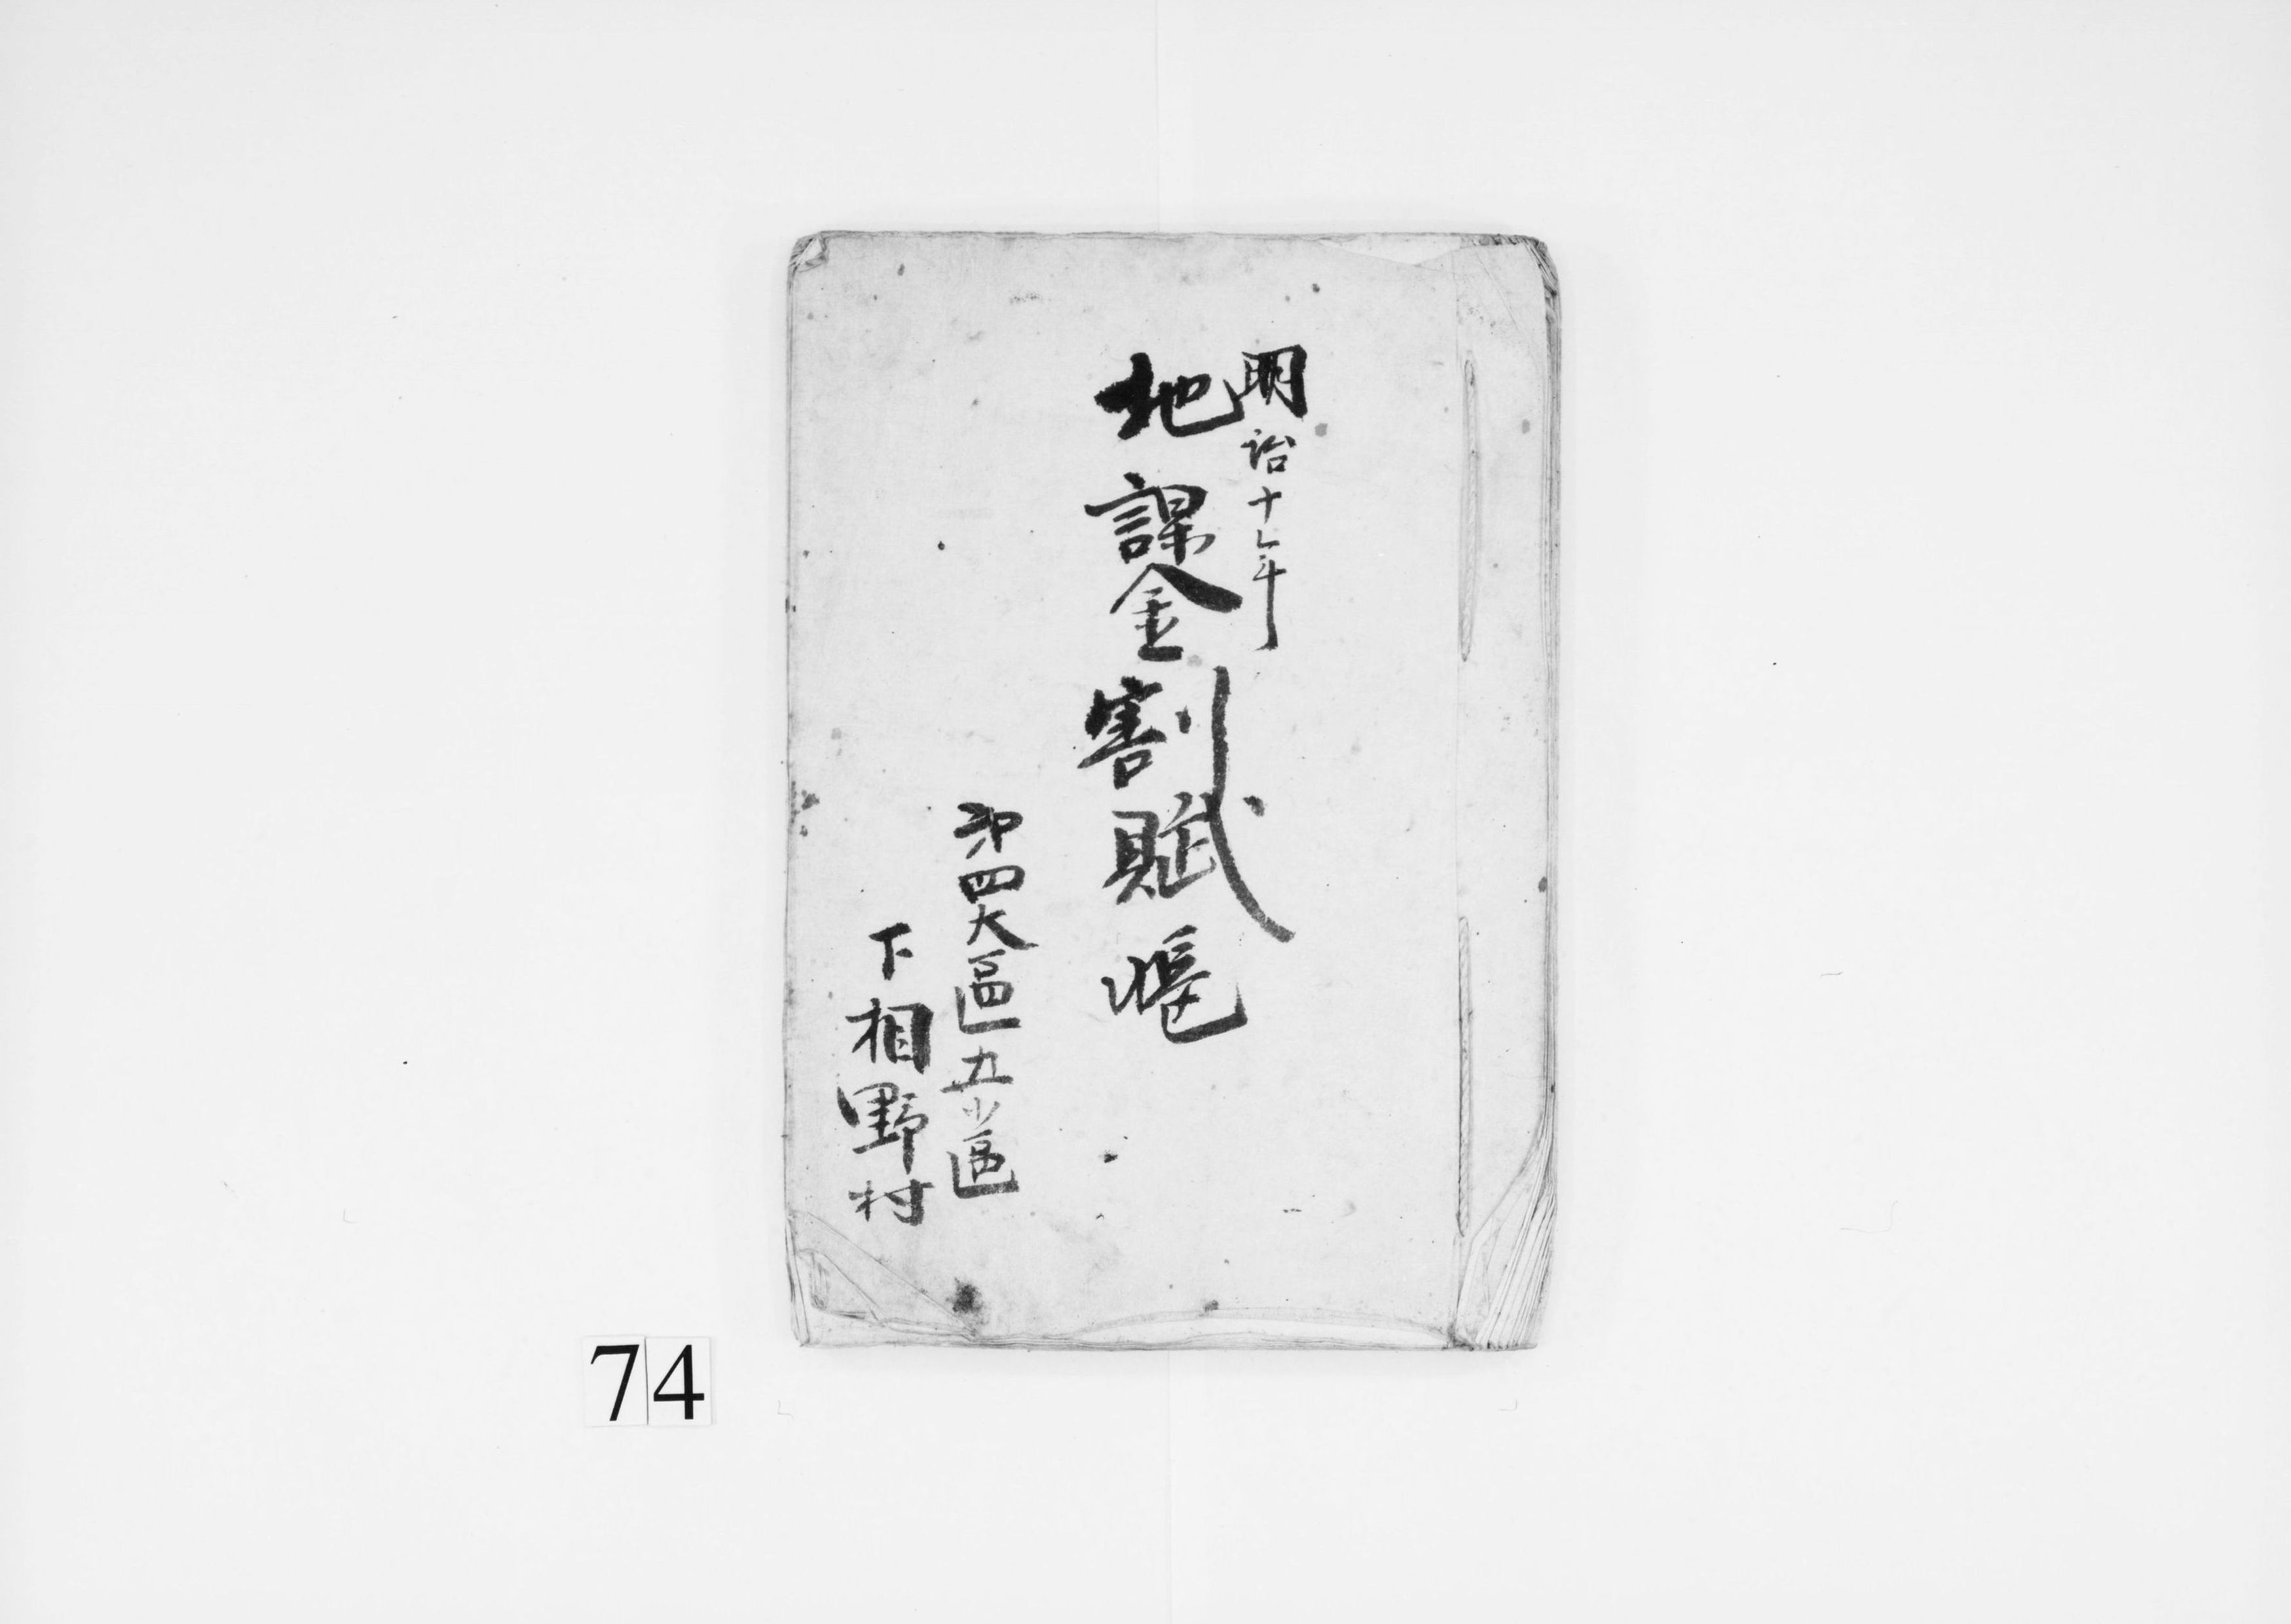 明治十年
地課金割賦帳
第四大區五小區
下相野村
74